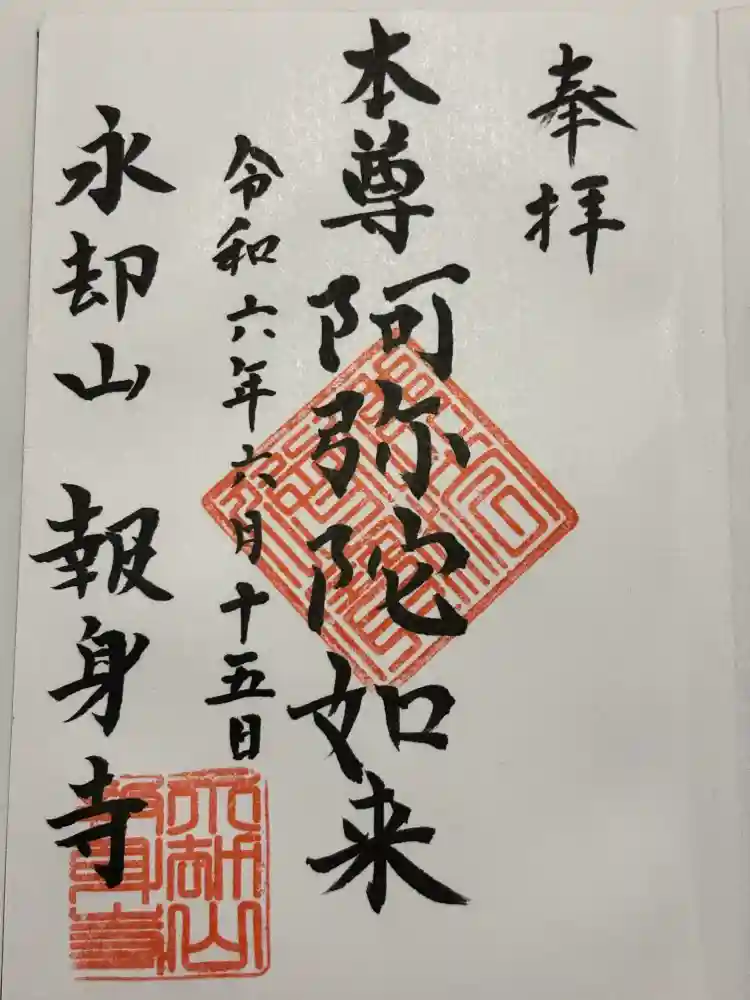 奉拝
本尊 阿弥陀如来
令和六年六月十五日
永却山 報身寺